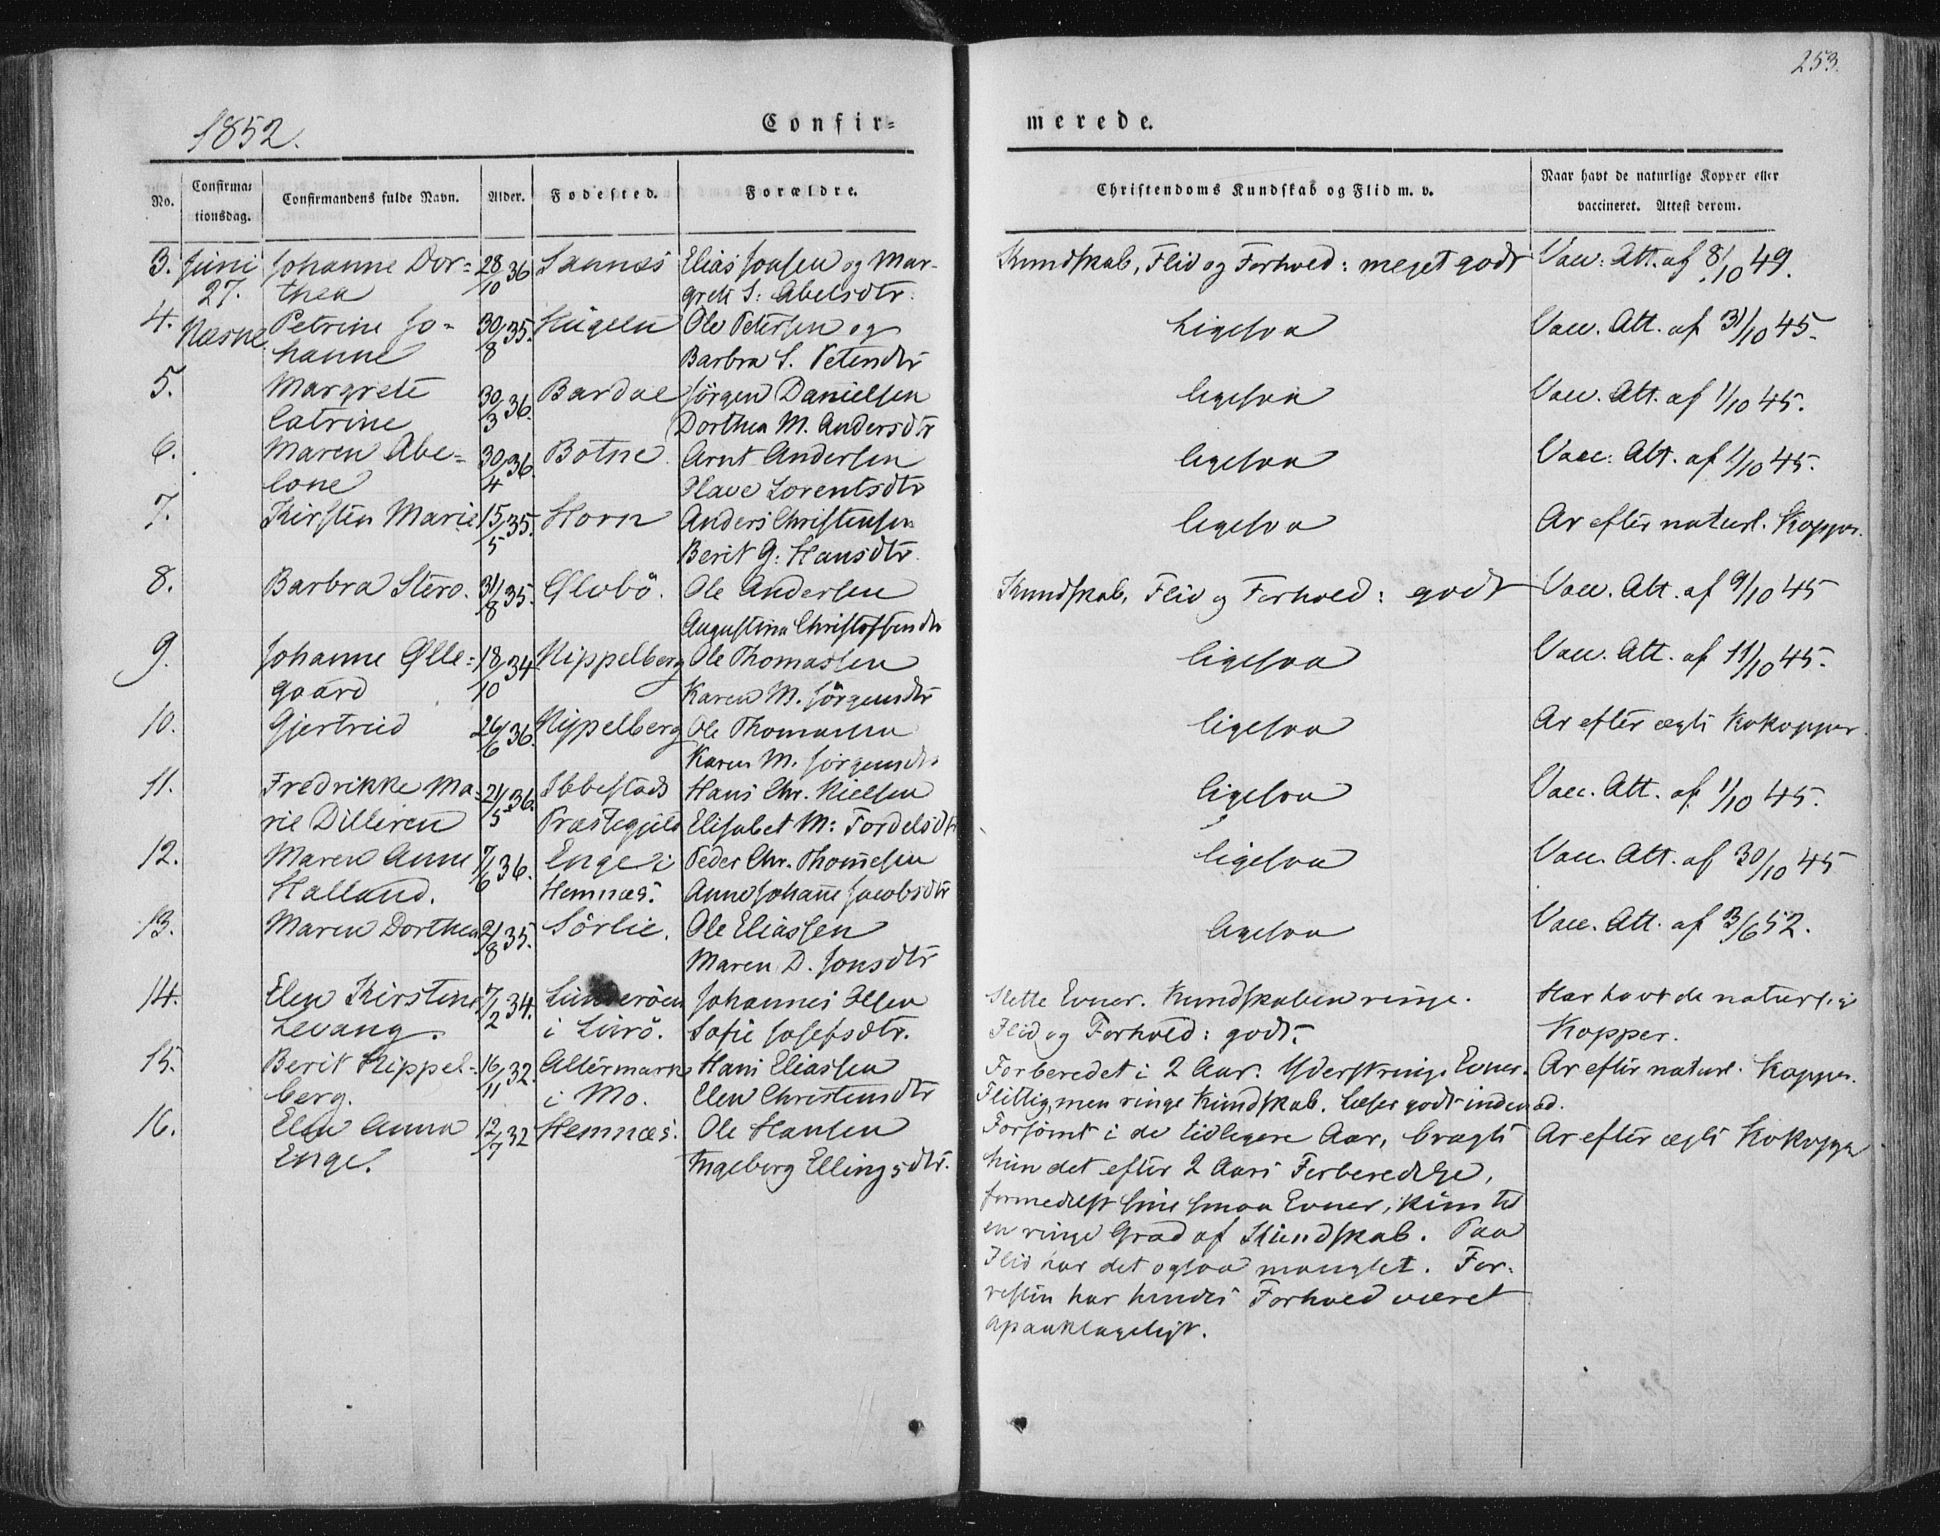 253.
1852.
Confir=
merede.
No.
Confirma=
tionsdag.
Confirmandens fulde Navn.
Alder.
Fødested.
Forældre.
Christendoms Kundskab og Flid m. v.
Naar havt de naturlige Kopper eller
vaccineret. Attest derom.
3. Juni Johanne Dor= 28/10 36 Sannes Elias Jonsen og Mar- Kundskab, Flid og Forhold: meget godt Vacc. Att. af 8/10 49.
27. thea grete S: Abelsdtr.
4. Næsne Petrine Jo- 30/8 35. Ole Petersen og Ligesaa Vacc. Att. af 31/10 45.
hanne Barbra S.
5. Margrete 30/3 36. Bardal Jörgen Danielsen ligesaa Vacc. Att. af 1/10 45.
Catrine Dorthea M. Andersdtr
6. Maren Abe= 30/4 36. Botne Arnt Andersen ligesaa Vacc. Att. af 1/10 45.
lone Olave Lorentsdtr
7. Kirsten Marie 15/5 35. Horn Anders Christensen ligesaa Ar efter naturl. Kopper.
Berit G. Hansdtr.
8. Barbra Stero. 31/8 35. Ole Andersen Kundskab, Flid og Forhold: godt Vacc. Att. af 9/10 45
Augustina Christoffersdtr
9. Johanne Ølle= 18/10 34 Nippelberg Ole Thomassen ligesaa Vacc. Att. af 11/10 45.
gaard Karen M. Jörgensdtr
10. Gjertrud 26/6 36. Nippelberg Ole Thomassen ligesaa Ar efter ægte Kokopper.
Karen M. Jörgensdtr
11. Fredrikke Ma- 21/5 36. Ibbestads Hans Chr. Nielsen ligesaa Vacc. Att. af 1/10 45.
rie Dilliren Præstegjeld Elisabet M: Tordelsdtr
12. Maren Anne 7/6 36. Enge i Peder Chr. Thomesen ligesaa Vacc. Att. af 30/10 45
Halland. Hemnæs. Anne Johane Jacobsdtr
13. Maren Dorthea 21/8 35. Sörlie. Ole Eliassen ligesaa Vacc. Att. af 3/6 52.
Maren D. Jonsdtr
14. Elen Kirstine 7/2 34. Johannes Olsen Slette Evner. Kundskaben ringe. Har havt de naturlige
Levang. i Lurö. Sofie Josefsdtr. Flid og Forhold: godt. Kopper.
15. Berit Nippel- 16/11 32. Altermark Hans Eliassen Forberedet i 2 Aar. Yderst ringe Evner. Ar efter naturl. Kopper.
berg. i Mo. Elen Christensdtr Flittig, men ringe Kundskab. Læser godt indenad.
16. Elen Anna 12/7 32 Hemnæs. Ole Hansen Forsömt i de tidligere Aar, bragte Ar efter ægte Kokopper
Enge. Ingeborg Ellingsdtr. hun det efter 2 Aars Forberedelse,
formedelst sine smaa Evner, kun til
en ringe Grad af Kundskab. Paa
Flid har det ogsaa manglet. For-
resten har hendes Forhold været
upaaklageligt.